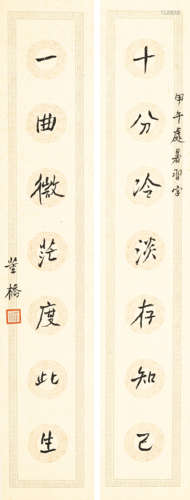 甲午處暑習字
十分冷淡存知己
一曲微茫度此生
董橋